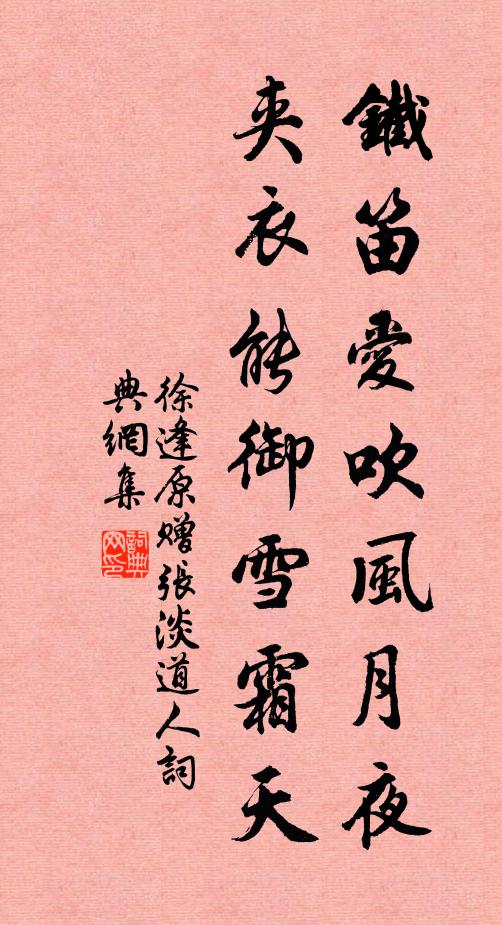 鐵笛愛吹風月夜
夾衣能御雪霜天
徐逢原贈張淡道人詞
典網集
詞典网印